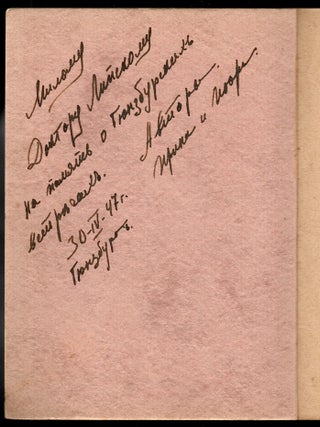 Милому
Доктору Липскому
на память о Гюнзбургских
встречах.
Авторы.
Ирина и Игорь.
30-IV-47г.
Гюнзбург.